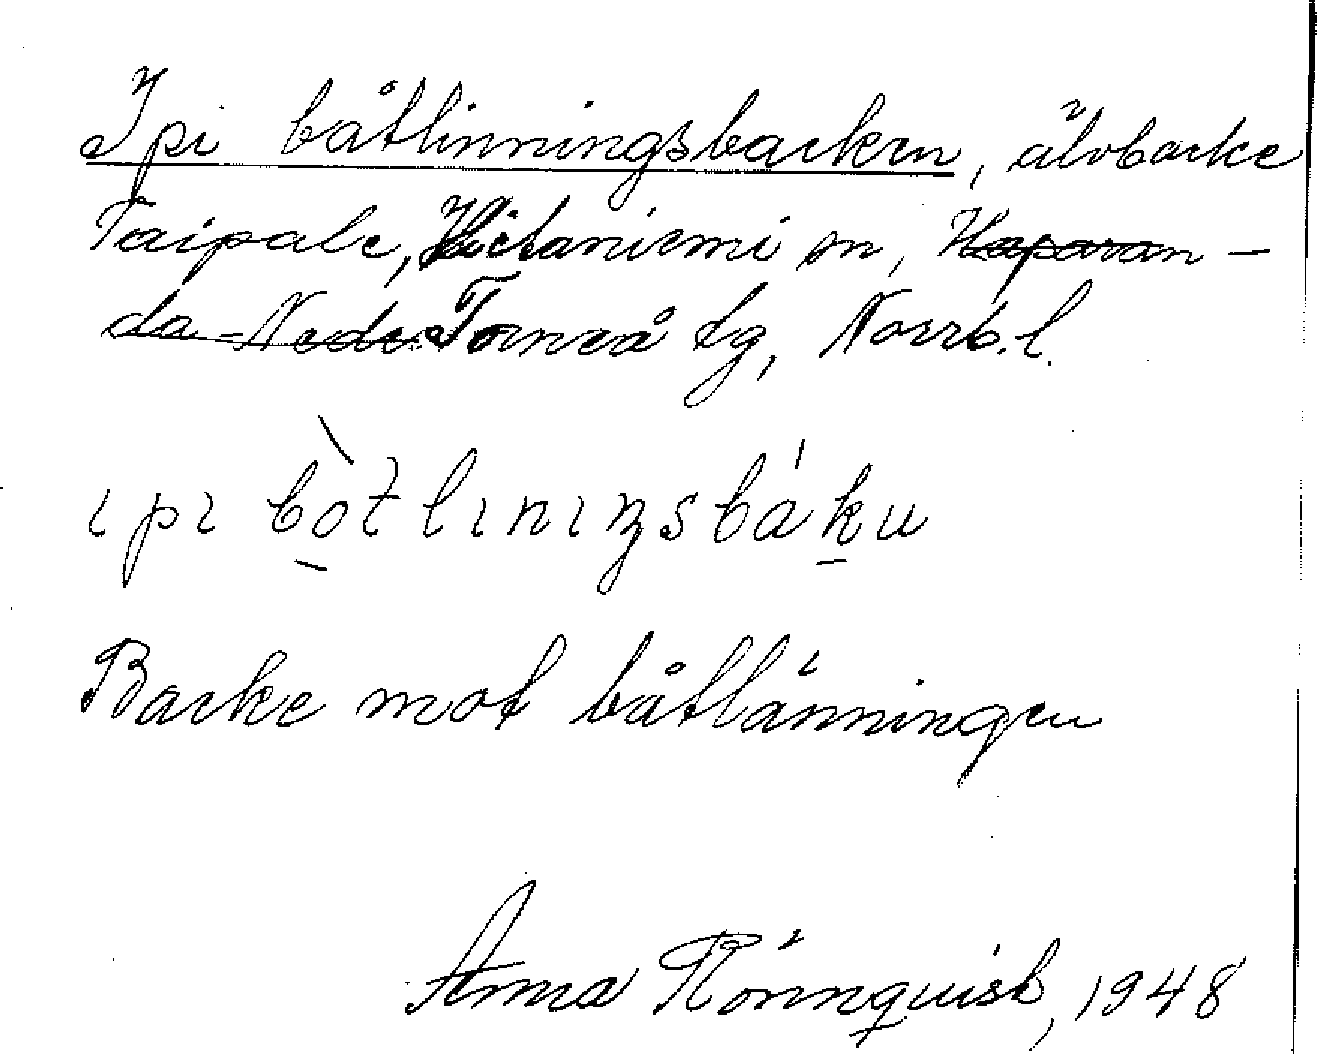 Ipi båtlinningsbacken, älvbacke
Taipale, Hietaniemi sn, Haparan-
da-Neder Torneå tg, Norrb.l.
ıpı bòtlınıŋsbáku
Backe mot båtlänningen
Anna Rönnquist, 1948